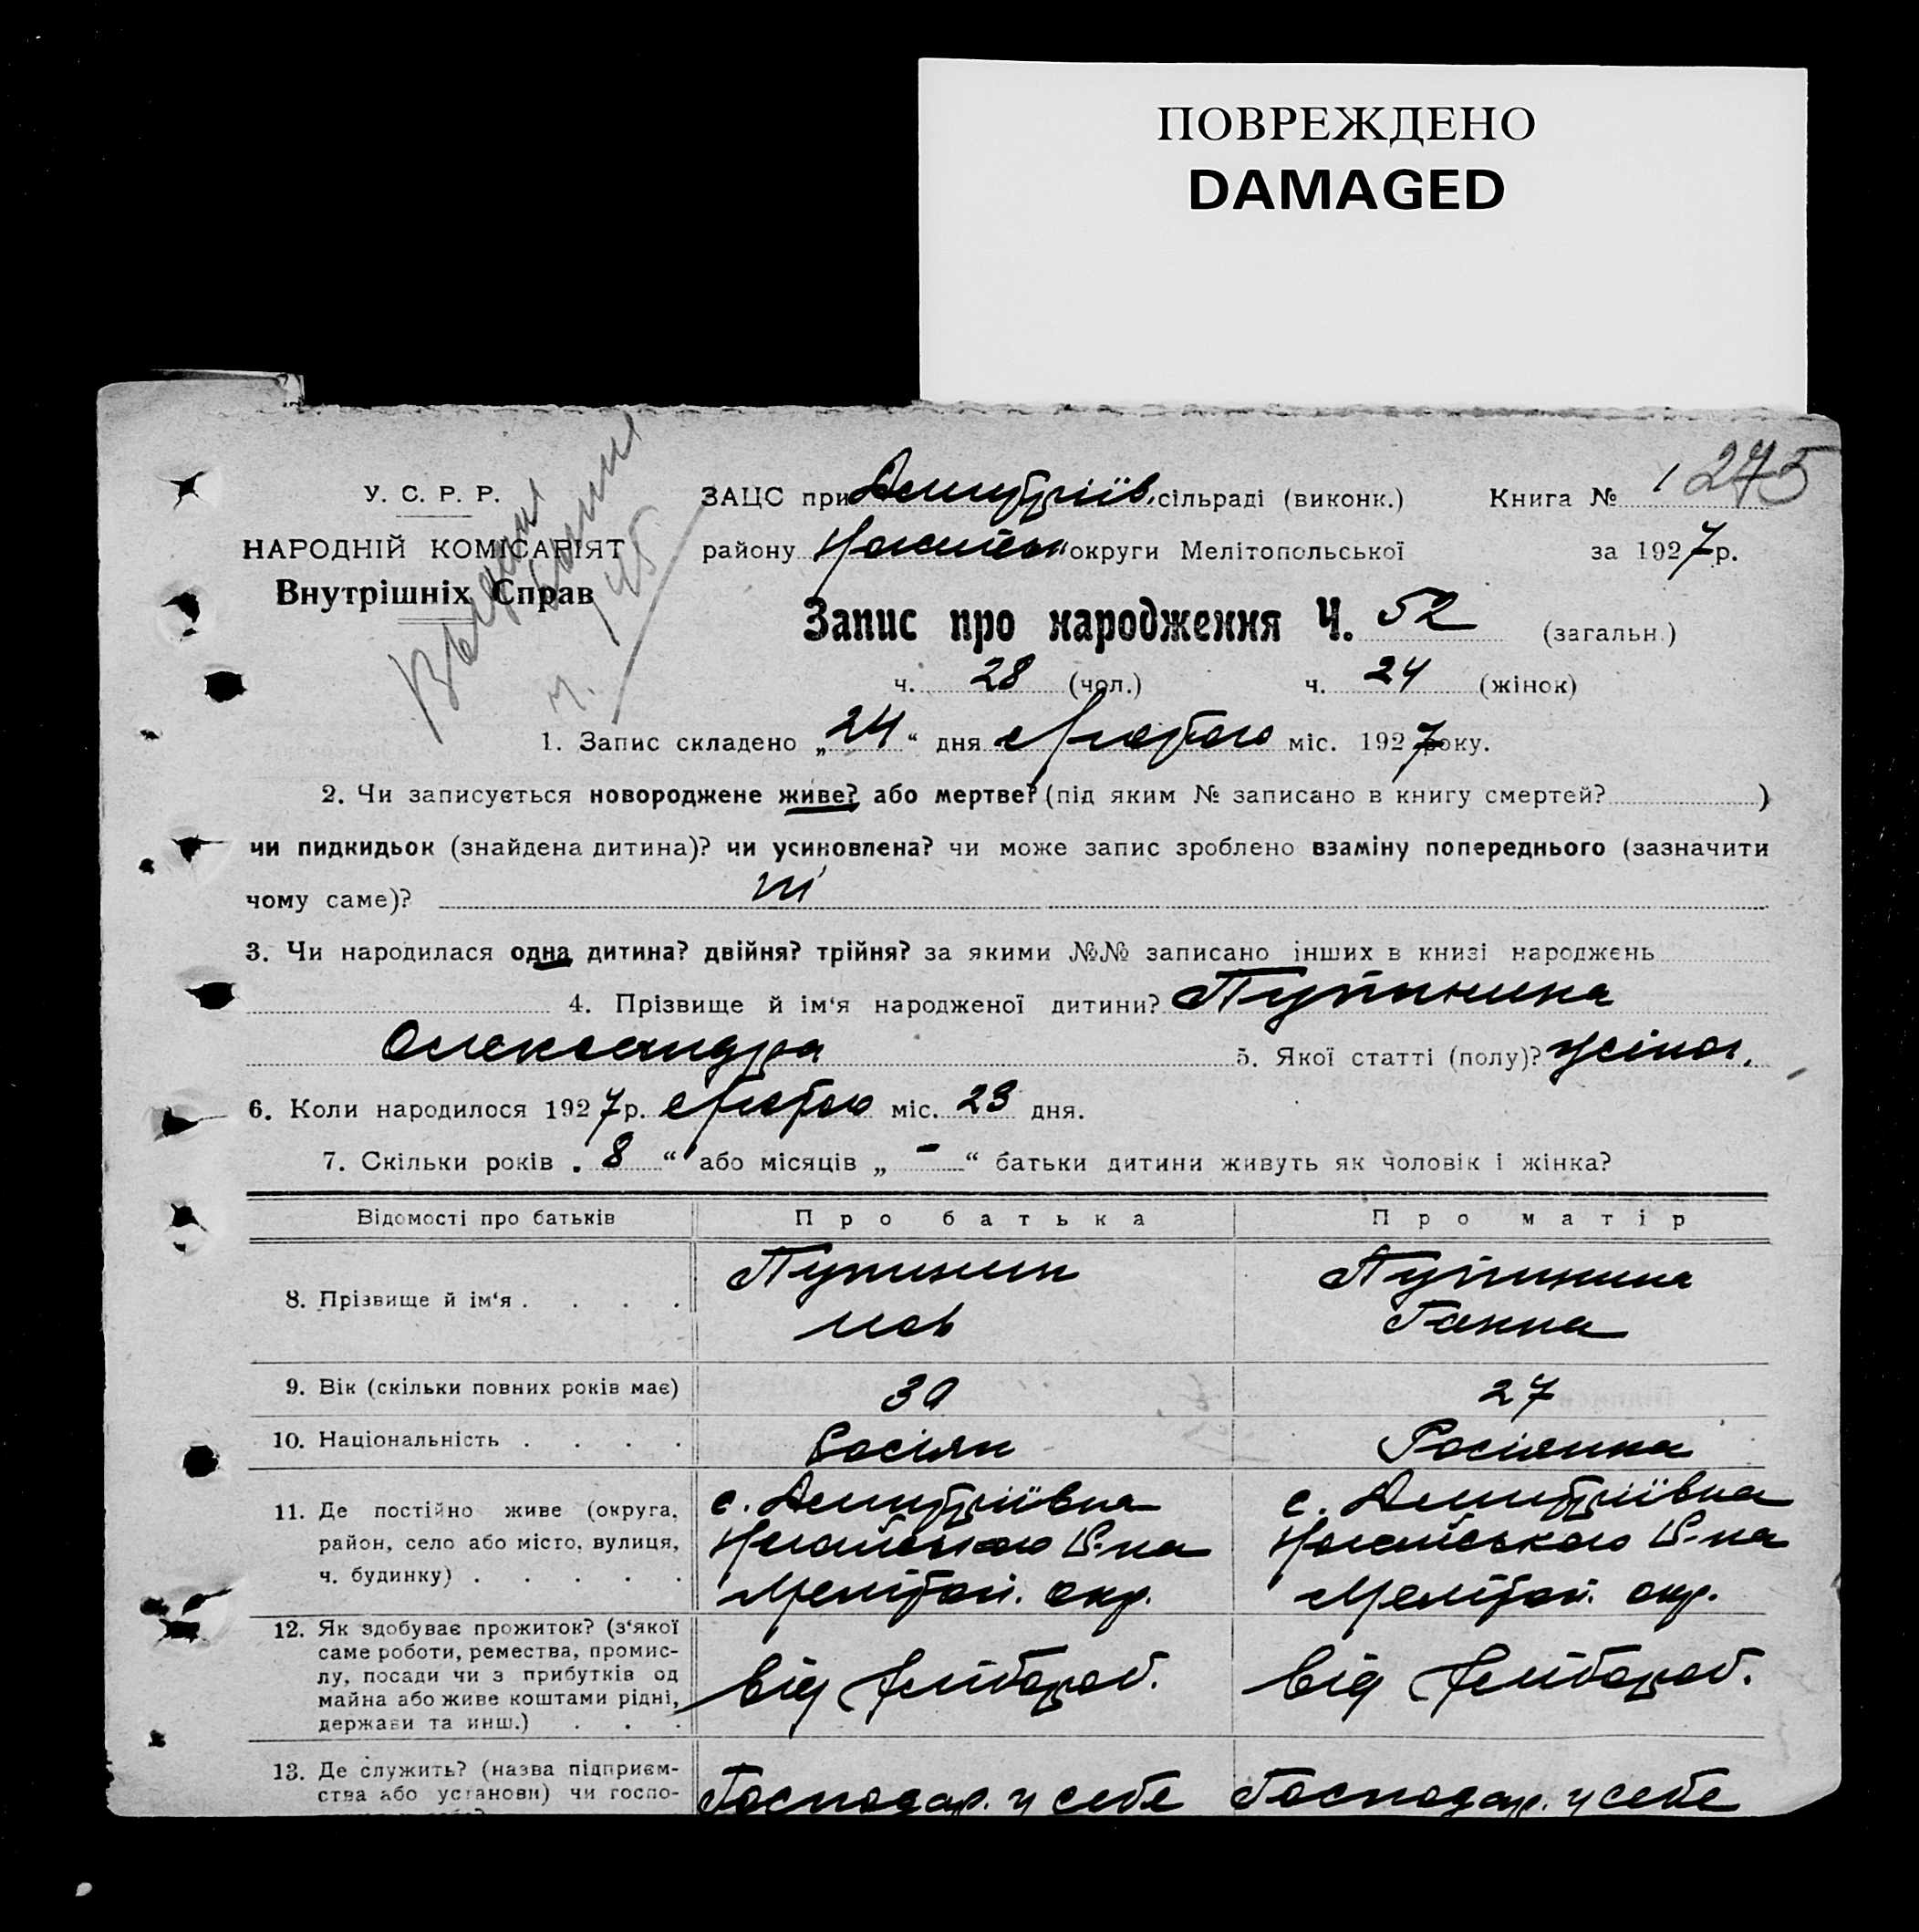 ПОВРЕЖДЕНО
DAMAGED
У. С. Р. Р.
НАРОДНІЙ КОМІСАРІЯТ
Внутрішніх Справ
275
ЗАЦС при Дмитріїв. сільраді (виконк.) Книга № 1
району округи Мелітопольської за 1927 р.
Запис про народження Ч. 52 (загальн.)
ч. 28 (чол.) ч. 24 (жінок)
1. Запис складено „24“ дня Лютого міс. 1927 року.
2. Чи записується новороджене живе? або мертве? (під яким № записано в книгу смертей? )
чи пидкидьок (знайдена дитина)? чи усиновлена? чи може запис зроблено взаміну попереднього (зазначити
чому саме)? ні
3. Чи народилася одна дитина? двійня? трійня? за якими №№ записано інших в книзі народжень
4. Прізвище й ім‘я народженої дитини?
Олександра 5. Якої статті (полу)? жіноч.
6. Коли народилося 1927 р. Лютого міс. 23 дня.
7. Скільки років „8“ або місяців „-“ батьки дитини живуть як чоловік і жінка?
Відомості про батьків Про батька Про матір
8. Прізвище й ім‘я . . . .
Ганна
9. Вік (скільки повних років має) 30 27
10. Національність . . . . Росіян Росіянка
11. Де постійно живе (округа, с. Дмитріївка с. Дмитріївка
район, село або місто, вулиця, Ногайського Р-на Ногайського Р-на
ч. будинку) . . . . . Мелітоп. окр. Мелітоп. окр.
12. Як здобуває прожиток? (з‘якої
саме роботи, ремества, промис-
лу, посади чи з прибутків од
майна або живе коштами рідні, від хлібороб. від хлібороб.
держави та инш.) . . .
13. Де служить? (назва підприєм-
ства або установи) чи госпо- Господар. у себе Господар. у себе